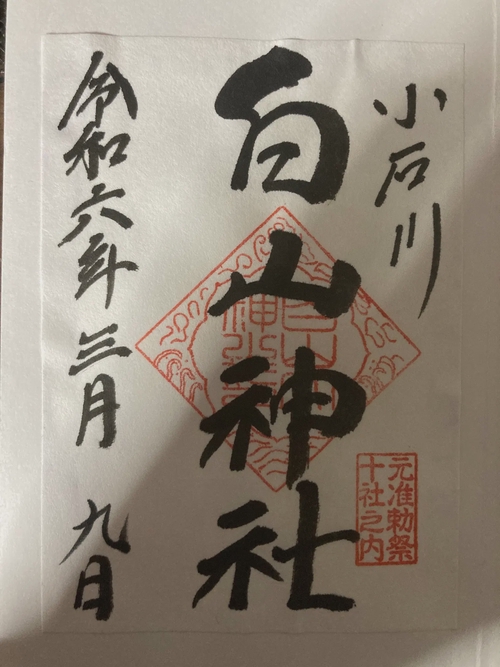 小石川
白山神社
元准勅祭
十社之内
令和六年三月九日